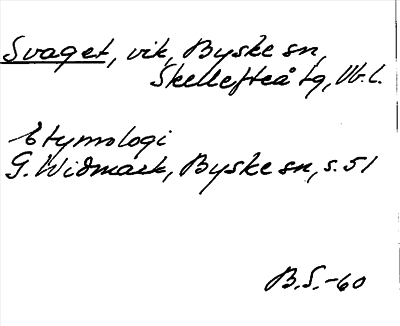 Svaget, vik, Byske sn,
Skellefteå tg, Vb. l.
Etymologi
G. Widmark, Byske sn, s. 51
B.S.-60